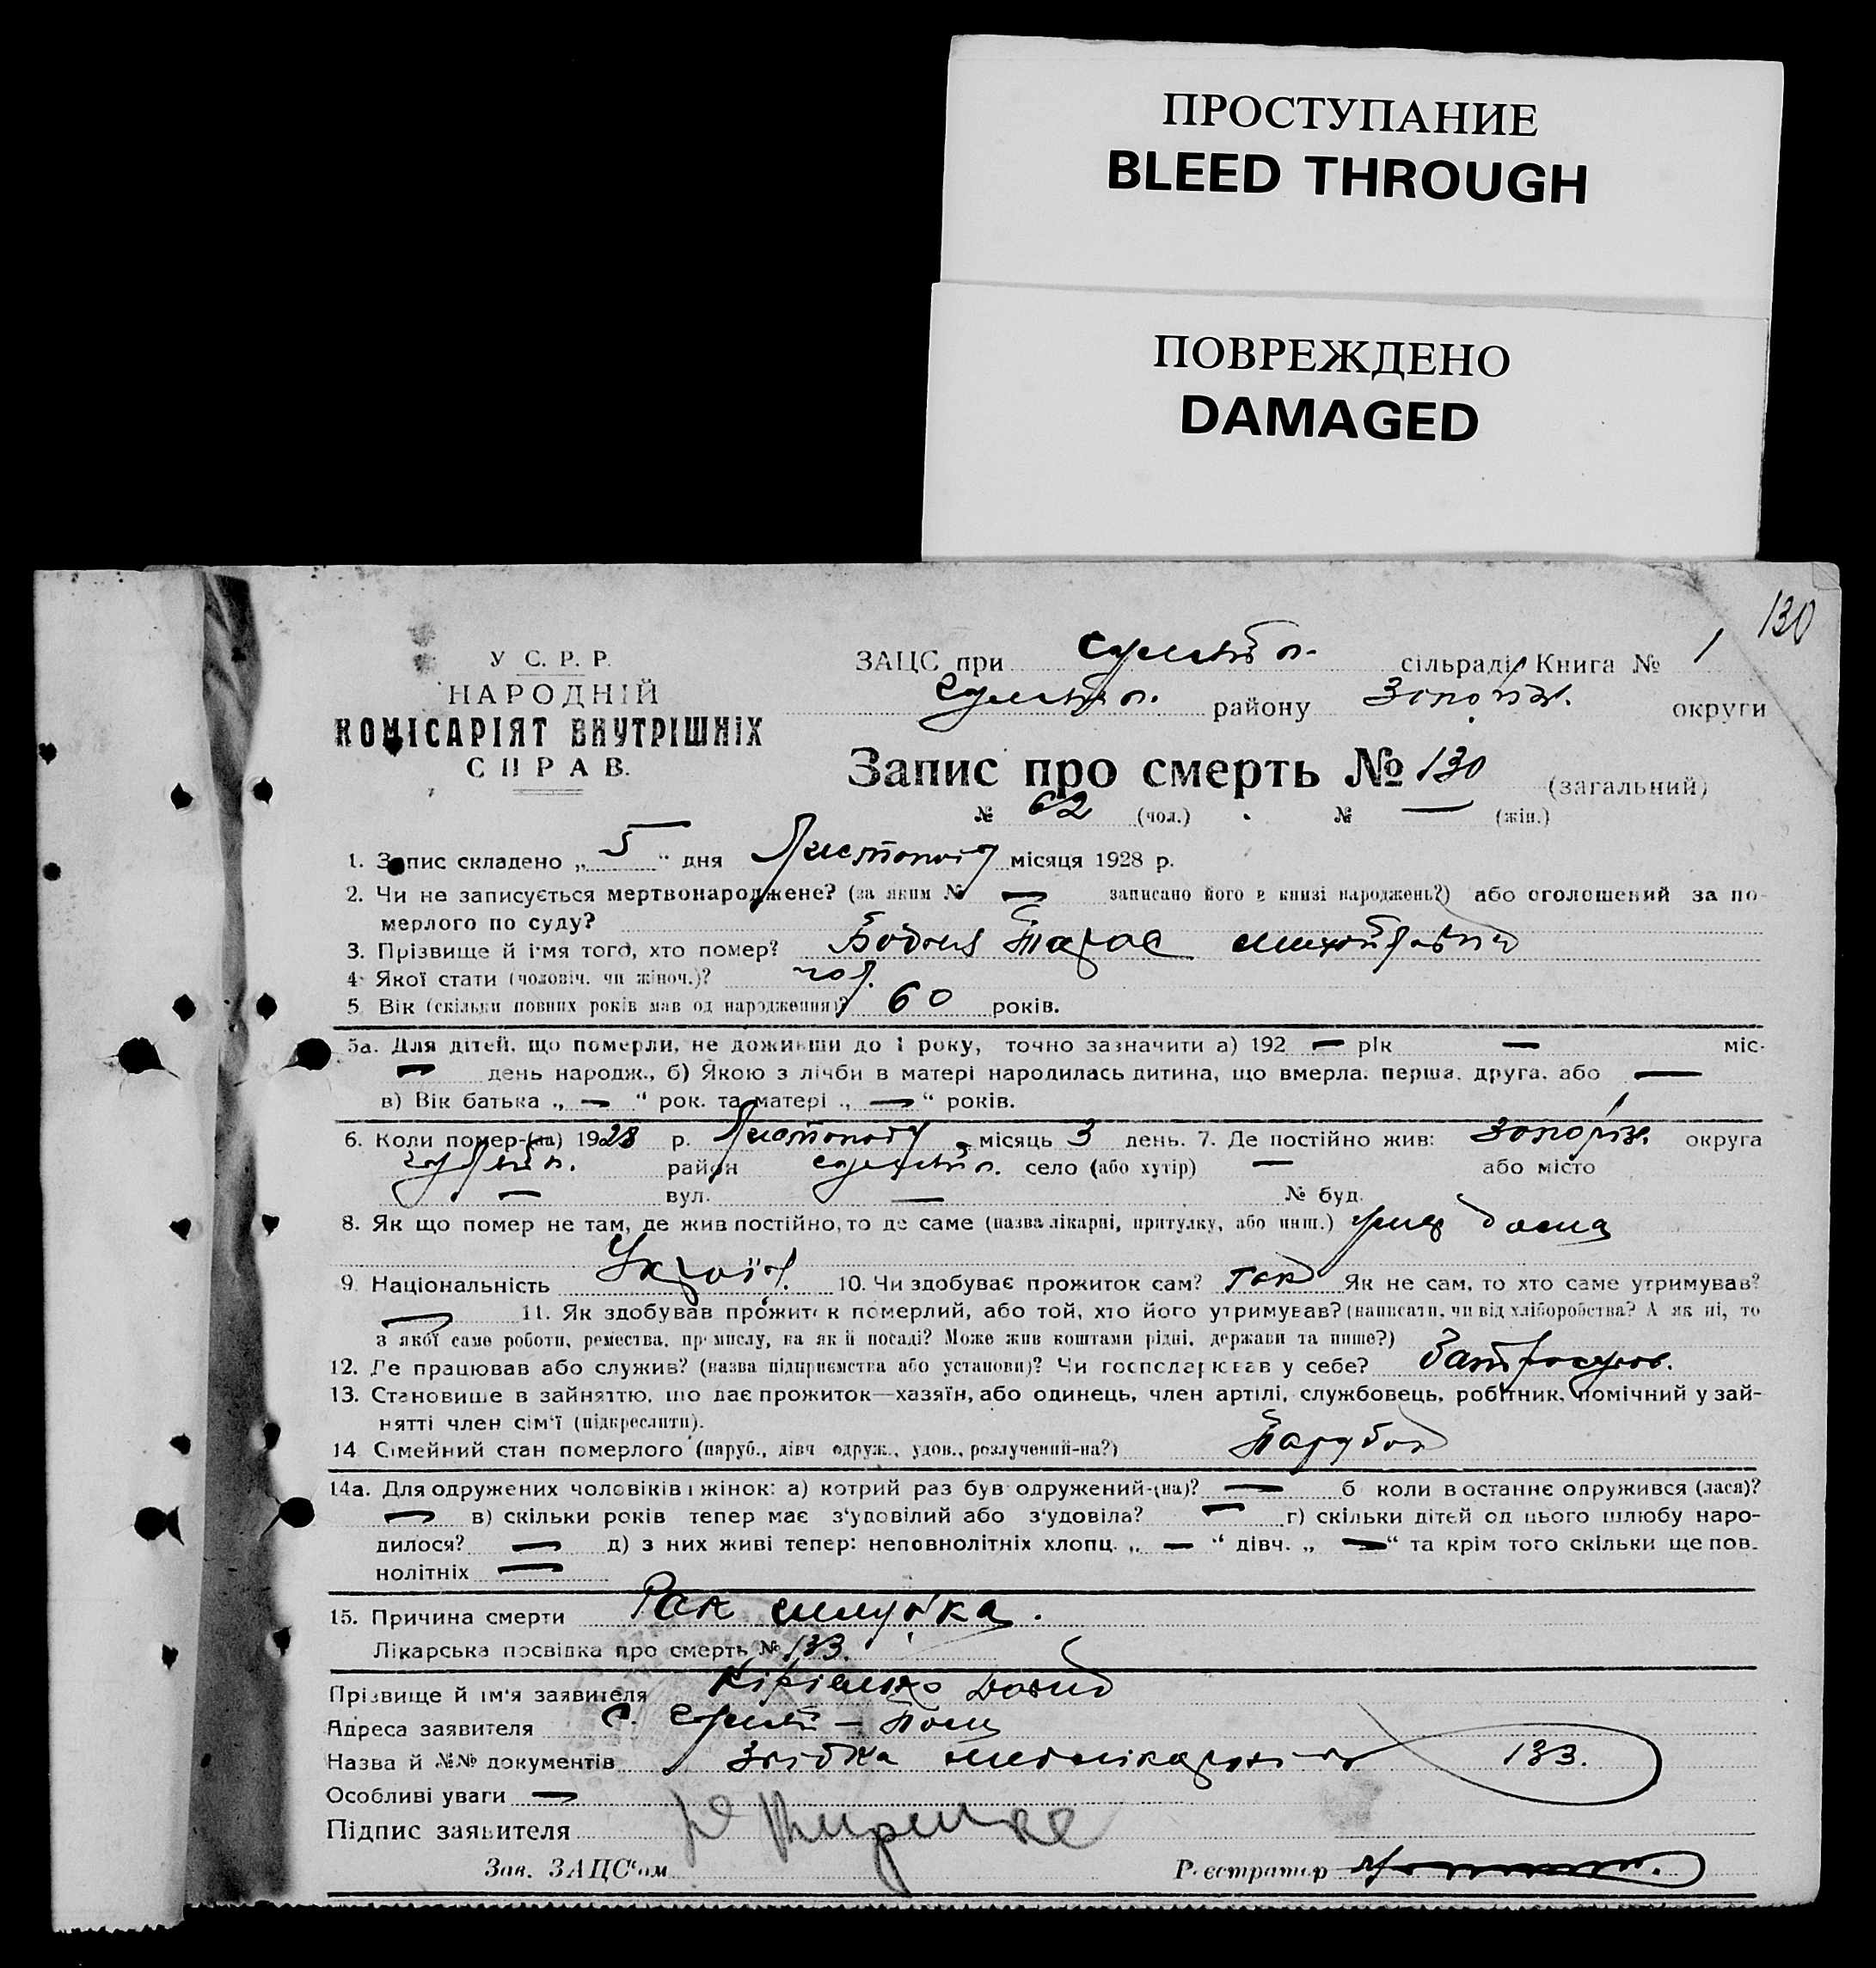 ПРОСТУПАНИЕ
BLEED THROUGH
ПОВРЕЖДЕНО
DAMAGED
130
У С. Р. Р.
НАРОДНІЙ
КОМІСАРІЯТ ВНУТРІШНІХ
СПРАВ.
ЗАЦС при сільраді Книга № 1
району Запоріж. округи
Запис про смерть № 130 (загальний)
№ 62 (чол.) № — (жін.)
1. Запис складено „ 5 “ дня Листопад місяця 1928 р.
2. Чи не записується мертвонароджене? (за яким № — записано його в книзі народжень?) або оголошений за по-
мерлого по суду?
3. Прізвище й імя того, хто помер? Тарас
4. Якої статі (чоловіч. чи жіноч.)? чол.
5. Вік (скільки повних років мав од народження)? 60 років.
5а. Для дітей, що померли, не доживши до 1 року, точно зазначити а) 192 — рік — міс-
— день народж., б) Якою з лічби в матері народилась дитина, що вмерла: перша, друга, або —
в) Вік батька „ — “ рок. та матері „ — “ років.
6. Коли помер-(ла) 1928 р. Листопад місяць 3 день. 7. Де постійно жив: Запоріж. округа
район село (або хутір) — або місто
— вул. — № буд.
8. Як що помер не там, де жив постійно, то де саме (назва лікарні, притулку, або инш.) дома
9. Національність Україн. 10. Чи здобуває прожиток сам? так Як не сам, то хто саме утримував?
— 11. Як здобував прожиток померлий, або той, хто його утримував? (написати, чи від хліборобства? А як ні, то
з якої саме роботи, ремества, промислу, на якій посаді? Може жив коштами рідні, держави та инше?)
12. Де працював або служив? (назва підприємства або установи)? Чи господарював у себе?
13. Становище в зайняттю, що дає прожиток—хазяїн, або одинець, член артілі, службовець, робітник, помічний у зай-
нятті член сім'ї (підкреслити).
14. Сімейний стан померлого (паруб., дівч. одруж., удов., розлучений-на?) Парубок
14а. Для одружених чоловіків і жінок: а) котрий раз був одружений-(на)? — б коли востаннє одружився (лася)?
— в) скільки років тепер має з'удовілий або з'удовіла? — г) скільки дітей од цього шлюбу наро-
дилося? — д) з них живі тепер: неповнолітніх хлопц. „ — “ дівч. „ — “ та крім того скільки ще пов-
нолітніх —
15. Причина смерти Рак шлунка.
Лікарська посвідка про смерть № 133.
Прізвище й ім'я заявителя
Адреса заявителя с.
Назва й №№ документів 133.
Особливі уваги —
Підпис заявителя
Зав. ЗАЦС'ом Реєстратор